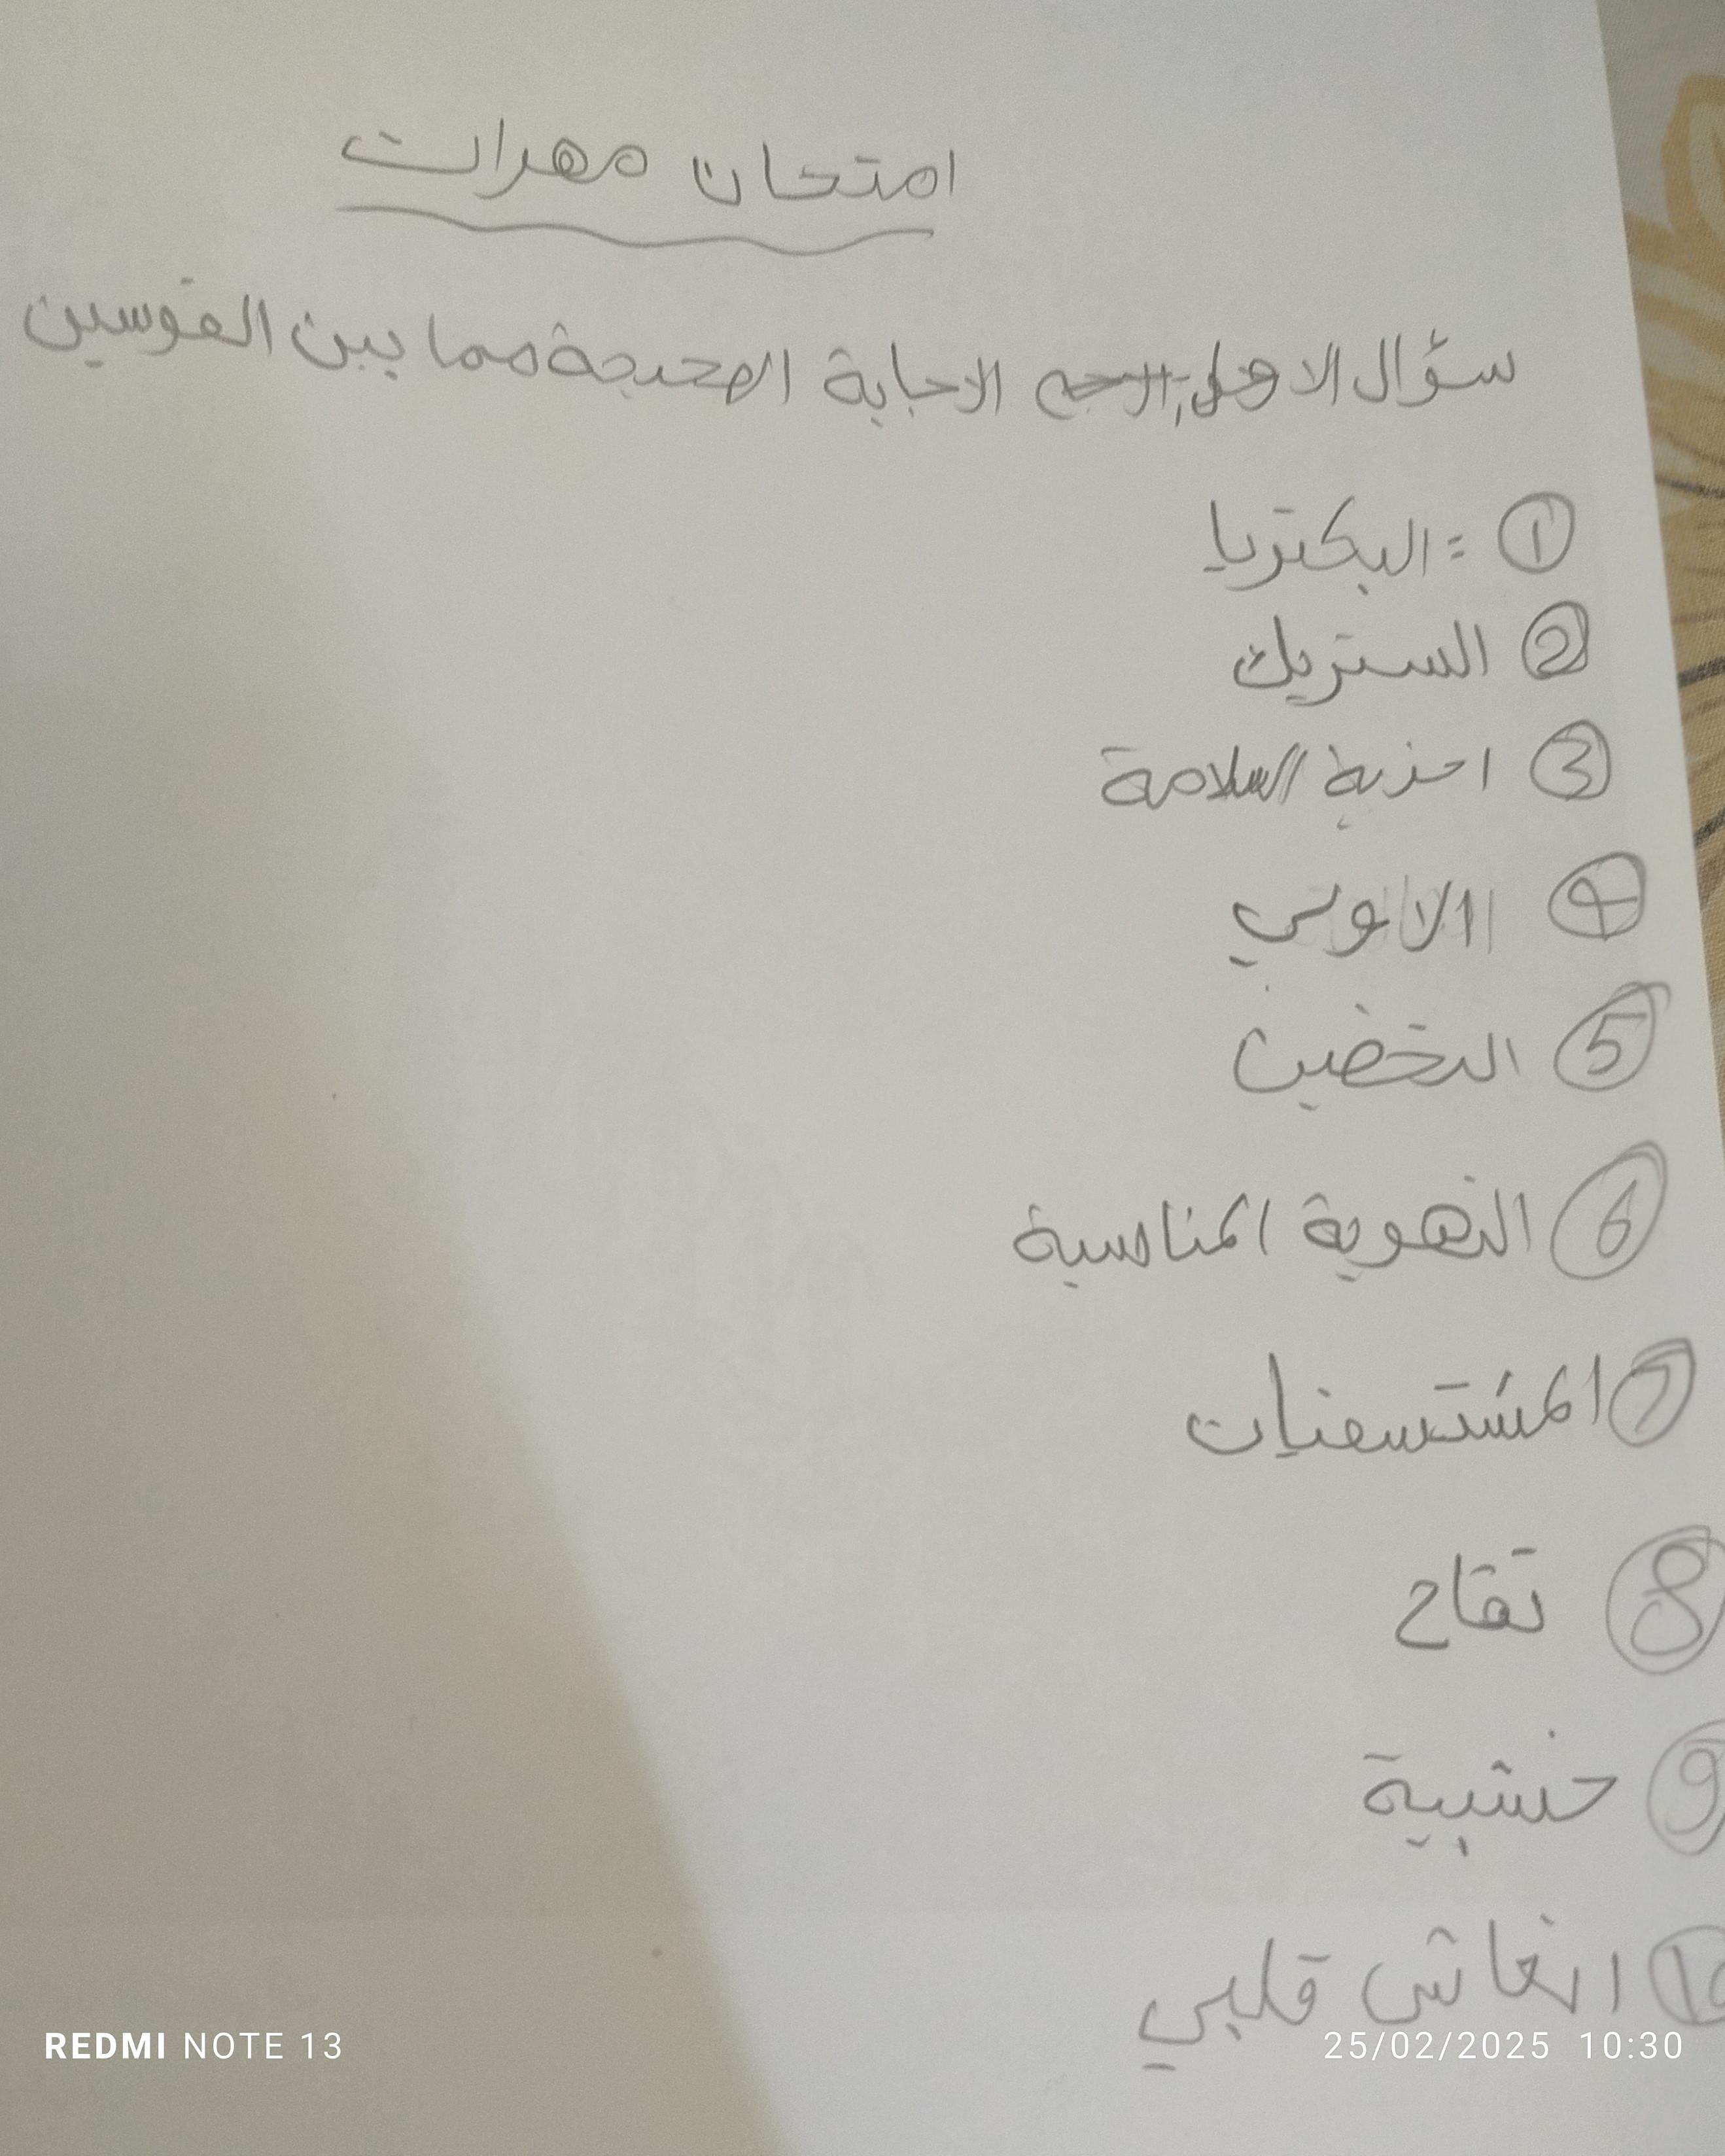 امتحان مهرات
سؤال الاول الاجابة الصحيحة مما بين القوسين
① = البكتريا
② الستريك
③ احذية السلامة
④
⑤ التخضين
⑥ التهوية المناسبة
⑦ المشتسفيات
⑧ تفاح
⑨ خشبية
⑩ انعاش قلبي
REDMI NOTE 13
25/02/2025 10:30